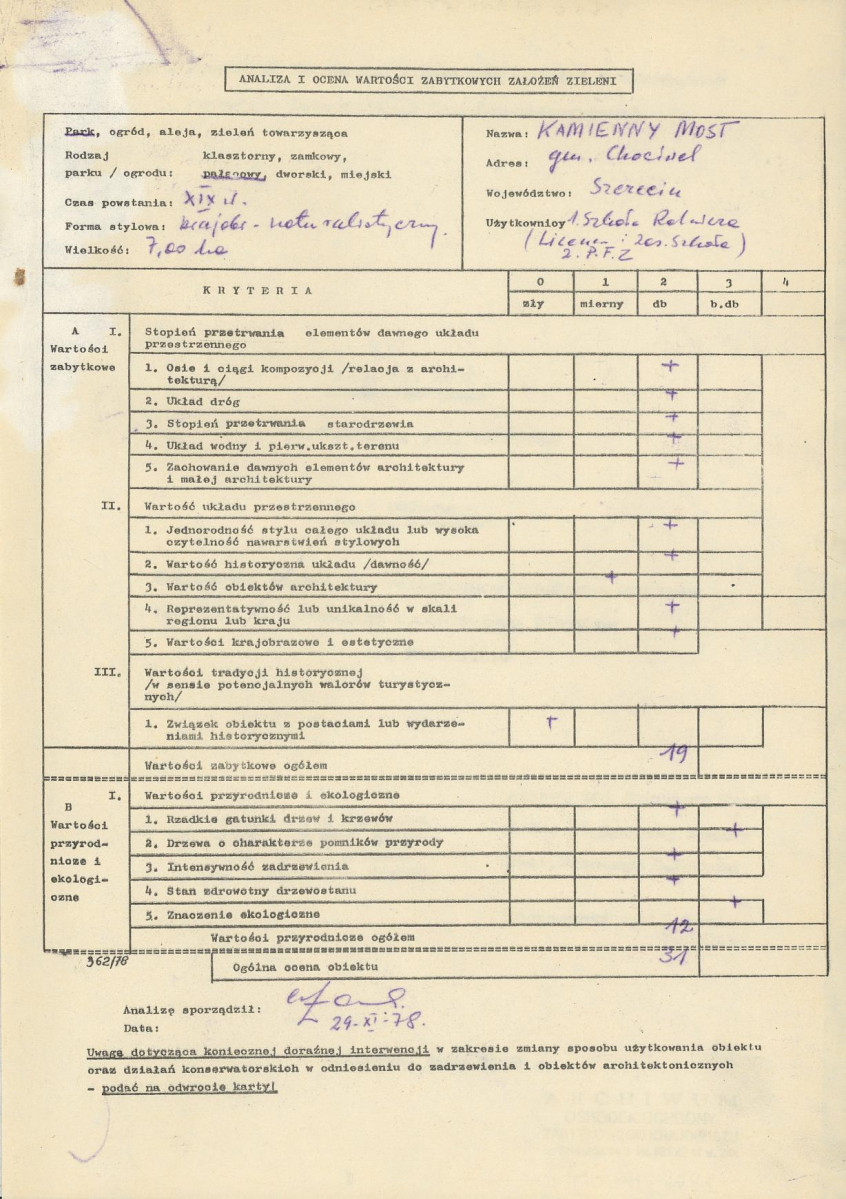 ANALIZA I OCENA WARTOŚCI ZABYTKOWYCH ZAŁOŻEŃ ZIELENI
Park, ogród, aleja, zieleń towarzysząca
Rodzaj klasztorny, zamkowy,
parku / ogrodu: pałacowy, dworski, miejski
Czas powstania: XIX w.
Forma stylowa: krajobr - naturalistyczny
Wielkość: 7,00 ha
Nazwa: KAMIENNY MOST
Adres: gm. Chociwel
Województwo: Szczecin
Użytkownicy 1. Szkoła Rolnicza
(Liceum i Zas. Szkoła)
2. P.F.Z
KRYTERIA
0 1 2 3 4
zły mierny db b.db
A I. Stopień przetrwania elementów dawnego układu
Wartości przestrzennego
zabytkowe 1. Osie i ciągi kompozycji /relacja z archi-
tekturą/ +
2. Układ dróg +
3. Stopień przetrwania starodrzewia +
4. Układ wodny i pierw.ukszt.terenu +
5. Zachowanie dawnych elementów architektury +
i małej architektury
II. Wartość układu przestrzennego
1. Jednorodność stylu całego układu lub wysoka +
czytelność nawarstwień stylowych
2. Wartość historyczna układu /dawność/ +
3. Wartość obiektów architektury +
4. Reprezentatywność lub unikalność w skali +
regionu lub kraju
5. Wartości krajobrazowe i estetyczne +
III. Wartości tradycji historycznej
/w sensie potencjalnych walorów turystycz-
nych/
1. Związek obiektu z postaciami lub wydarze- +
niami historycznymi
Wartości zabytkowe ogółem 19
B I. Wartości przyrodnicze i ekologiczne
Wartości przyrod-
nicze i
ekologi-
czne
1. Rzadkie gatunki drzew i krzewów +
2. Drzewa o charakterze pomników przyrody +
3. Intensywność zadrzewienia +
4. Stan zdrowotny drzewostanu +
5. Znaczenie ekologiczne +
Wartości przyrodnicze ogółem 12
362/78 Ogólna ocena obiektu 31
Analizę sporządził:
Data: 29-XI-78.
Uwagę dotycząca koniecznej doraźnej interwencji w zakresie zmiany sposobu użytkowania obiektu
oraz działań konserwatorskich w odniesieniu do zadrzewienia i obiektów architektonicznych
- podać na odwrocie karty!